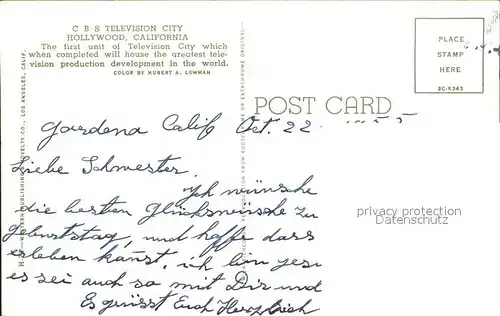 C B S TELEVISION CITY
HOLLYWOOD, CALIFORNIA
The first unit of Television City which
when completed will house the greatest tele-
vision production development in the world.
COLOR BY HUBERT A. LOWMAN
PLACE
STAMP
HERE
SC-K343
POST CARD
Gardena Calif Oct. 22 55
Liebe Schwester.
Ich wünsche
die besten Glückswünsche zu
Geburtstag, und hoffe dass
erleben kanst. ich bin
es sei auch so mit Dir und
Es grüsst Euch Herzlich
privacy protection
Datenschutz
WESTERN PUBLISHING & NOVELTY CO., LOS ANGELES, CALIF.